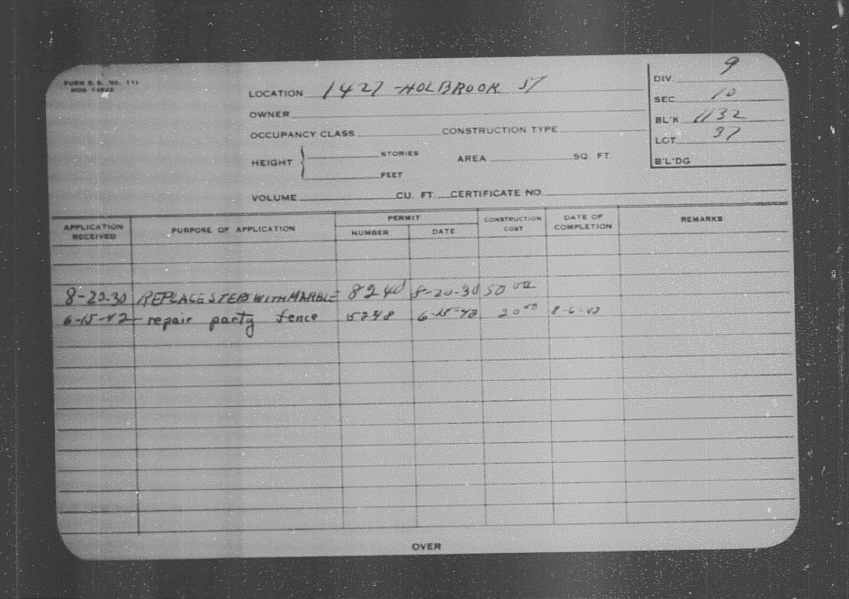 FORM B.E. No. 111
LOCATION 1427 HOLBROOK ST
DIV. 9
SEC 10
OWNER
BL'K 1132
OCCUPANCY CLASS CONSTRUCTION TYPE
LOT 37
HEIGHT STORIES AREA SQ FT.
FEET
B'L'DG
VOLUME CU. FT. CERTIFICATE NO.
APPLICATION RECEIVED PURPOSE OF APPLICATION PERMIT NUMBER DATE CONSTRUCTION COST DATE OF COMPLETION REMARKS
8-20-30 REPLACE STEPS WITH MARBLE 8240 8-20-30 50 00
6-15-42 repair party fence 5248 6-15-42 20 00 8-6-42
OVER